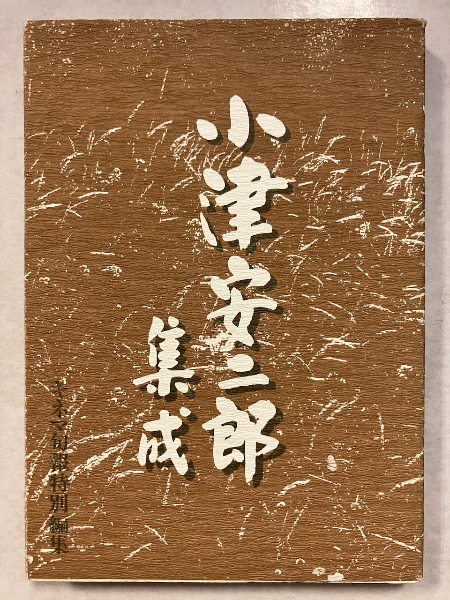 小津安二郎
集成
キネマ旬報特別編集